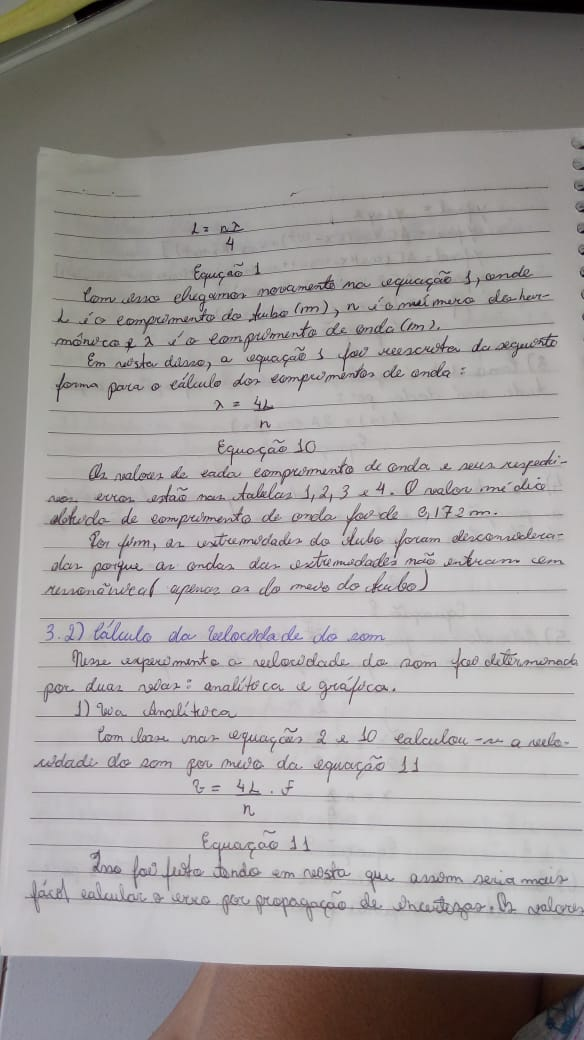 L = nλ
4
Equção 1
Com isso chegamos novamente na equação 1, onde
L é o comprimento do tubo (m), n é o número do har-
mônico e λ é o comprimento de onda (m).
Em vista disso, a equação 1 foi reescrita da seguinte
forma para o cálculo dos comprimentos de onda:
λ = 4L
n
Equação 10
Os valores de cada comprimento de onda e seus respecti-
vos erros estão nas tabelas 1, 2, 3 e 4. O valor médio
obtido de comprimento de onda foi de 0,172 m.
Por fim, as extremidades do tubo foram desconsidera-
das porque as ondas das extremidades não entram em
ressonância (apenas as do meio do tubo)
3.2) Cálculo da velocidade do som
Nesse experimento a velocidade do som foi determinada
por duas vias: analítica e gráfica.
1) Via Analítica
Com base nas equações 2 e 10 calculou-se a velo-
cidade do som por meio da equação 11
v = 4L . f
n
Equação 11
Isso foi feito tendo em vista que assim seria mais
fácil calcular o erro por propagação de incertezas. Os valores